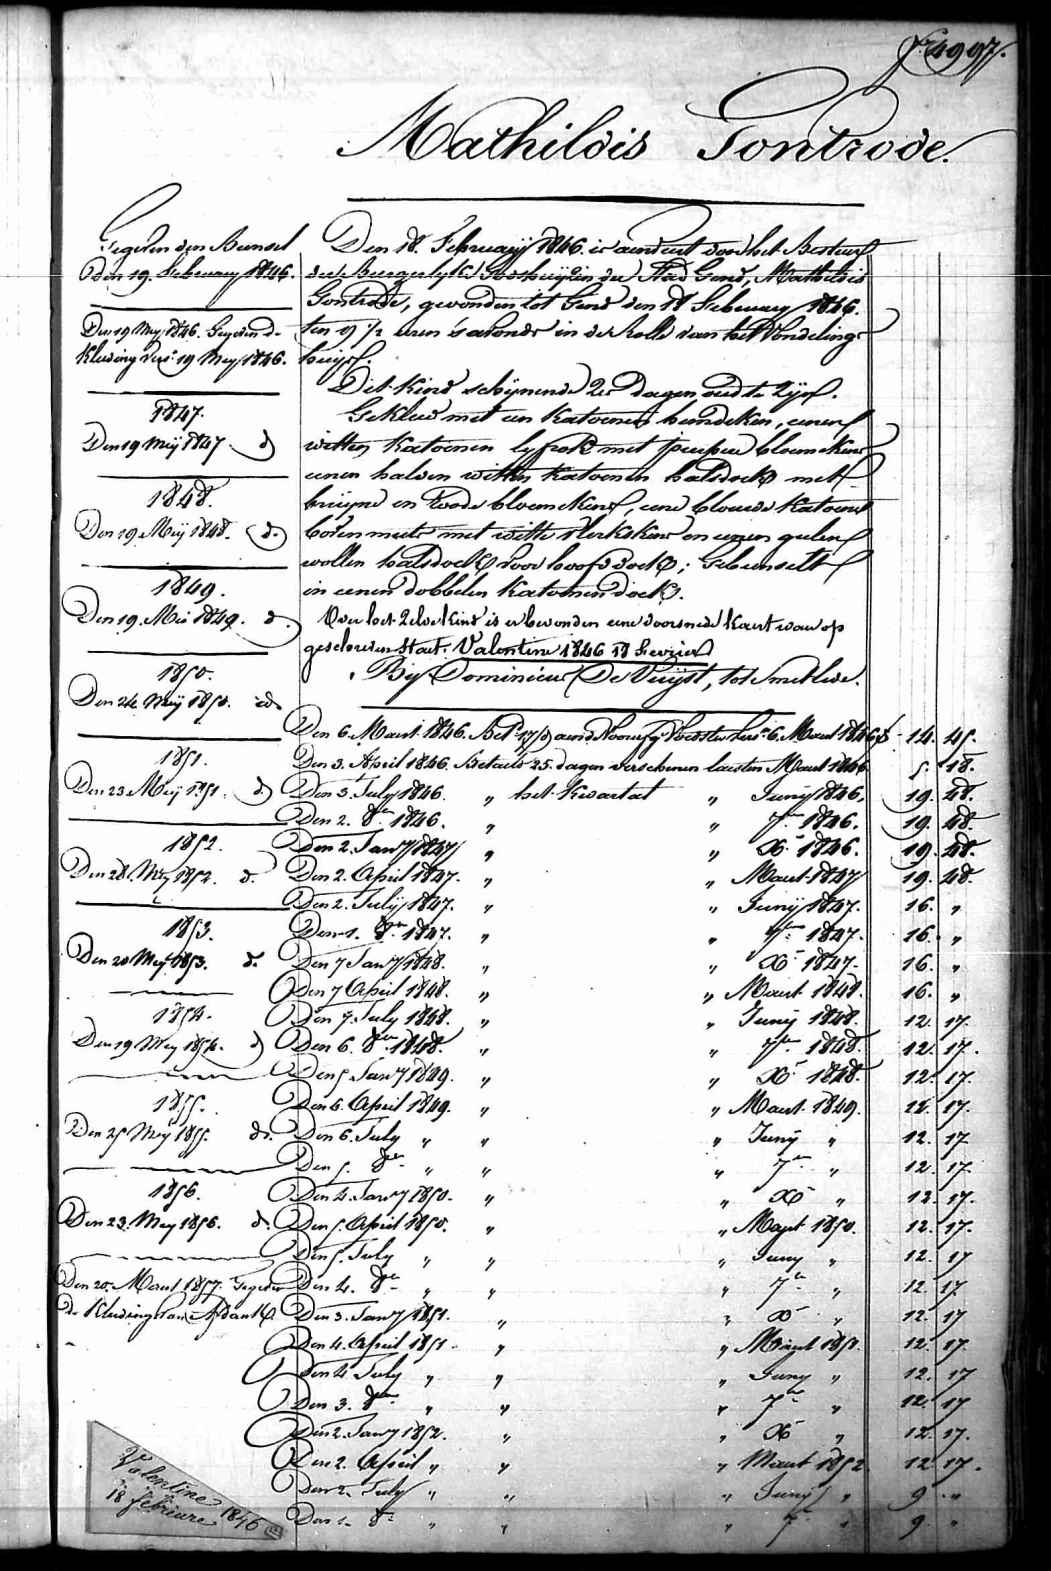 4997.
Mathildis Gontrode.
Gegeven den Bunsel
Den 19. February 1846.
Den 19 Mey 1846. Gegeven de
Kleeding Vers. 19 Mey 1846.
1847.
Den 19 Meij 1847 d
1848.
Den 19. Meij 1848. d.
1849.
Den 19. Mei 1849. d.
1850.
Den 24 Meij 1850. id.
1851.
Den 23 Meij 1851. d.
1852.
Den 28. Mey 1852. d.
1853.
Den 20 Mey 1853. d.
1854.
Den 19 Mey 1854. d
1855.
Den 25 Meij 1855. d.
1856.
Den 23. Mey 1856. d.
Den 20. Maert 1857. Gegeven
de Kleeding van Afdank
Den 18. February 1846. is aenveert door het Bestuur
der Burgerlyke Godshuyzen der Stad Gend, Mathildis
Gontrode, gevonden tot Gend den 18 February 1846.
ten 9 1/2 uren 's avonds in de Rolle van het Vondeling
huys.
Dit kind schynende 2 dagen oud te zyn.
Gekleed met een katoenen hemdeken, eenen
witten katoenen lyfrok met peirsche bloemekens
eenen halven witten katoenen halsdoek met
bruyne en roode bloemekens, eene blauwe katoene
muts met witte vlekskens en eenen geelen
wollen halsdoek voor hoofddoek; Gebunselt
in eenen dobbelen katoenen doek.
Over het zelve kind is er bevonden eene doorsnede kaert waer op
geschreven staet: Valentine 1846 18 Fevrier
By Dominicus De Vuyst, tot Smetlede.
Den 6. Maert 1846. Bet. 17/ aend Voorsz. Voedster Vers. 6. Maert 1846 14. 45.
Den 3. April 1846. Betaeld 25. dagen verschenen laesten Maert 1846 5. 18.
Den 3. July 1846. " het Kwartaal " Juny 1846. 19. 48.
Den 2. 8er 1846. " " 7er 1846. 19. 48.
Den 2. Janry 1847 " " Xr 1846. 19. 48.
Den 2. April 1847. " " Maert 1847 19. 48.
Den 2. July 1847. " " Junij 1847. 16. "
Den 1. 8er 1847. " " 7er 1847. 16. "
Den 7 Janry 1848. " " Xr 1847. 16. "
Den 7 April 1848. " " Maert 1848. 16. "
Den 7. July 1848. " " Junij 1848. 12. 17.
Den 6. 8er 1848. " " 7er 1848. 12. 17.
Den 5 Janry 1849. " " Xr 1848. 12. 17.
Den 6. April 1849. " " Maert 1849. 12. 17.
Den 6. July " " " Junij " 12. 17
Den 5. 8er " " " 7er " 12. 17
Den 4. Janry 1850. " " Xr " 12. 17.
Den 5. April 1850. " " Maert 1850. 12. 17.
Den 5. July " " " Juny " 12. 17
Den 4. 8er " " " 7er " 12. 17
Den 3. Janry 1851. " " Xr " 12. 17
Den 4. April 1851. " " Maert 1851. 12. 17.
Den 4 July " " " Juny " 12. 17
Den 3. 8er " " " 7er " 12. 17
Den 2. Janry 1852. " " Xr " 12. 17.
Den 2. April " " " Maert 1852 12 17.
Den 2. July " " " Junij " 9 "
Den 1. 8r " " " 7r " 9 "
Valentine 1846
18 février